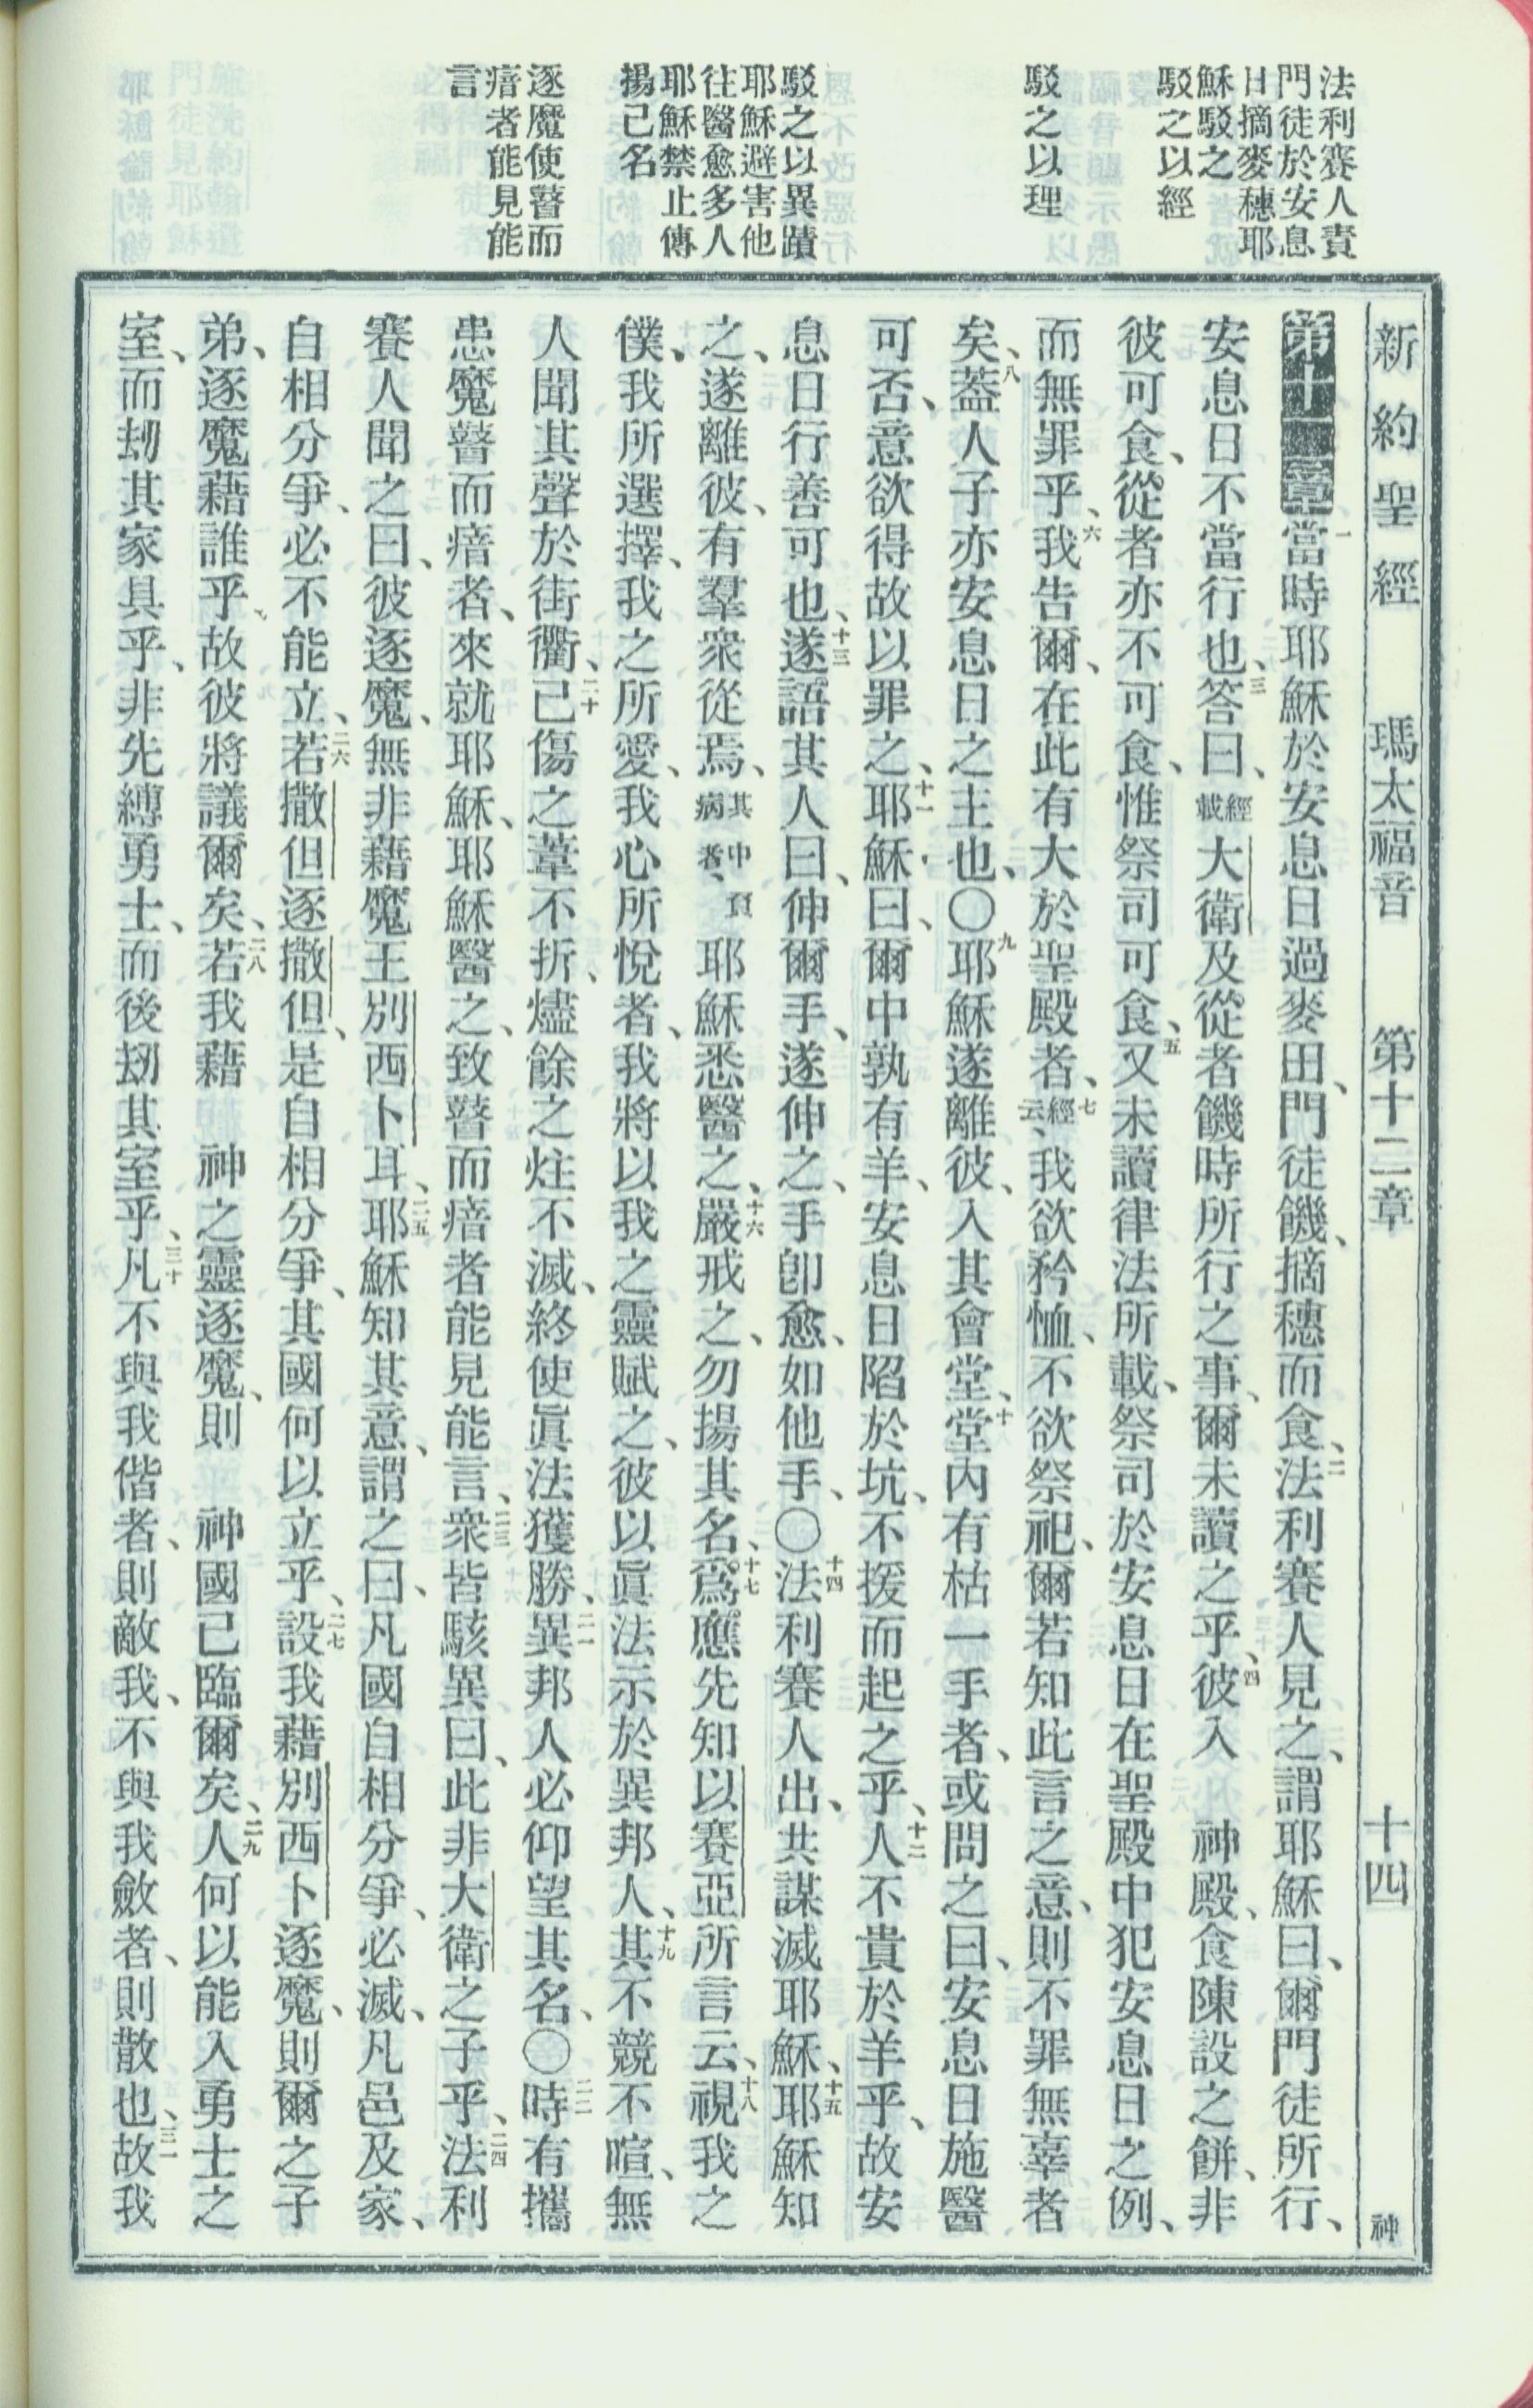 法利賽人責
門徒於安息
日摘麥穗耶
穌駁之
駁之以經
駁之以理
駁之以異蹟
耶穌避害他
往醫愈多人
耶穌禁止傳
揚己名
逐魔使瞽而
瘖者能見能
言
新約聖經 瑪太福音 第十二章 十四 神
第十二章 一當時耶穌於安息日過麥田、門徒饑、摘穗而食、二法利賽人見之、謂耶穌曰、爾門徒所行、
安息日不當行也、三答曰、經載大衛及從者饑時所行之事、爾未讀之乎、四彼入 神殿、食陳設之餅、非
彼可食、從者亦不可食、惟祭司可食、五又未讀律法所載、祭司於安息日在聖殿中犯安息日之例、
而無罪乎、六我告爾、在此有大於聖殿者、七經云、我欲矜恤、不欲祭祀、爾若知此言之意、則不罪無辜者
矣、八蓋人子亦安息日之主也、〇九耶穌遂離彼、入其會堂、十堂內有枯一手者、或問之曰、安息日施醫
可否、意欲得故以罪之、十一耶穌曰、爾中孰有羊、安息日陷於坑、不援而起之乎、十二人不貴於羊乎、故安
息日行善可也、十三遂語其人曰、伸爾手、遂伸之、手卽愈、如他手、〇十四法利賽人出、共謀滅耶穌、十五耶穌知
之、遂離彼、有羣衆從焉、其中有病者、耶穌悉醫之、十六嚴戒之、勿揚其名、十七爲應先知以賽亞所言云、十八視我之
僕、我所選擇、我之所愛、我心所悅者、我將以我之靈賦之、彼以眞法示於異邦人、十九其不競不喧、無
人聞其聲於街衢、二十已傷之葦不折、燼餘之炷不滅、終使眞法獲勝、二一異邦人必仰望其名、〇二二時有攜
患魔瞽而瘖者、來就耶穌、耶穌醫之、致瞽而瘖者能見能言、二三衆皆駭異曰、此非大衛之子乎、二四法利
賽人聞之曰、彼逐魔、無非藉魔王別西卜耳、二五耶穌知其意、謂之曰、凡國自相分爭、必滅、凡邑及家、
自相分爭、必不能立、二六若撒但逐撒但、是自相分爭、其國何以立乎、二七設我藉別西卜逐魔、則爾之子
弟、逐魔藉誰乎、故彼將議爾矣、二八若我藉 神之靈逐魔、則 神國已臨爾矣、二九人何以能入勇士之
室、而刼其家具乎、非先縛勇士、而後刼其室乎、三十凡不與我偕者、則敵我、不與我斂者、則散也、三一故我